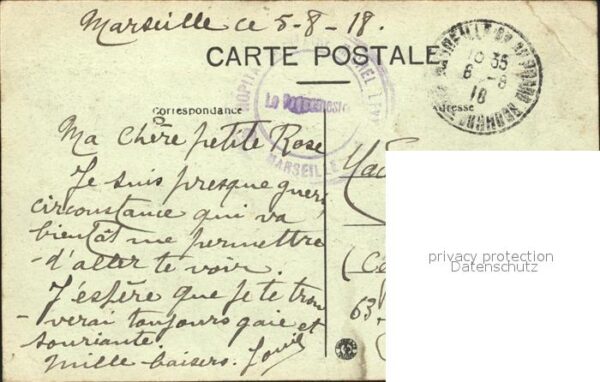 Marseille ce 5-8-18.
CARTE POSTALE
18 35
8 - 8
18
Correspondance
Adresse
HOPITA
MARSEILLE
Ma Chère petite Rose
Je suis presque guéri
circonstance qui va
bientôt me permettre
d'aller te voir.
J'espère que je te trou
verai toujours gaie et
souriante.
Mille baisers. Louis
63
privacy protection
Datenschutz